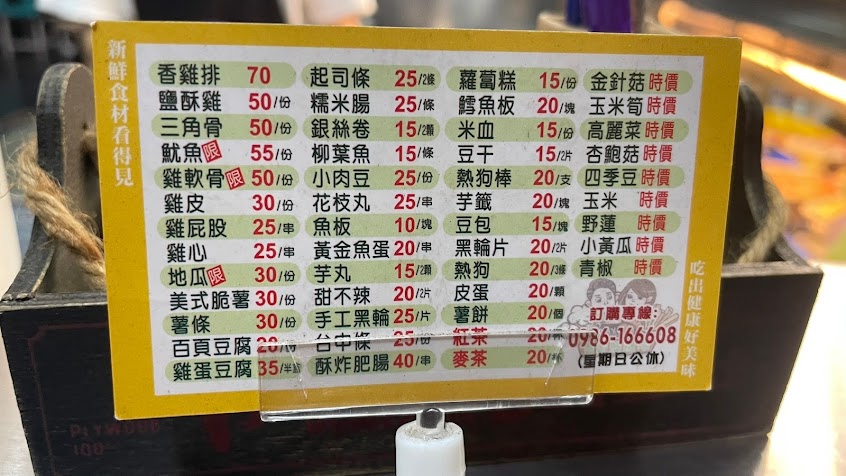 新鮮食材看得見
香雞排 70
鹽酥雞 50/份
三角骨 50/份
魷魚限 55/份
雞軟骨限 50/份
雞皮 30/份
雞屁股 25/串
雞心 25/串
地瓜限 30/份
美式脆薯 30/份
薯條 30/份
百頁豆腐 20
雞蛋豆腐 35/半
起司條 25/2條
糯米腸 25/條
銀絲卷 15/2顆
柳葉魚 15/條
小肉豆 25/份
花枝丸 25/串
魚板 10/塊
黃金魚蛋 20/串
芋丸 15/2顆
甜不辣 20/2片
手工黑輪 25/片
台中條 25/份
酥炸肥腸 40/串
蘿蔔糕 15/份
鱈魚板 20/塊
米血 15/份
豆干 15/2片
熱狗棒 20/支
芋籤 20/塊
豆包 15/塊
黑輪片 20/2片
熱狗 20/3條
皮蛋 20/顆
薯餅 20/個
紅茶 20
麥茶 20
金針菇 時價
玉米筍 時價
高麗菜 時價
杏鮑菇 時價
四季豆 時價
玉米 時價
野蓮 時價
小黃瓜 時價
青椒 時價
訂購專線:
0986-166608
(星期日公休)
吃出健康好美味
PLYWOOD
100